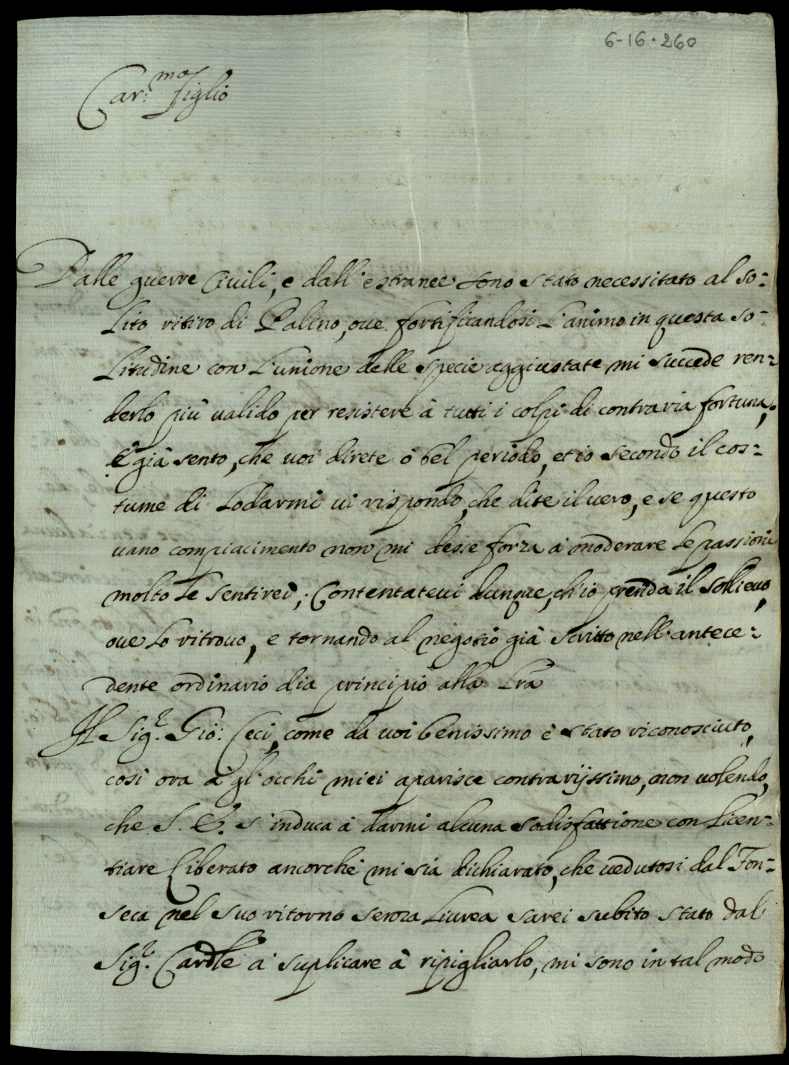 6-16-260
Car.mo figlio
Dalle guerre Civili, e dall'estranee sono stato necessitato al so=
lito ritiro di Palino, ove fortificandosi l'animo in questa so=
litudine con l'unione delle specie aggiustate mi succede ren=
derlo più valido per resistere à tutti i colpi di contraria fortuna,
e già sento, che voi direte ò bel periodo, et io secondo il cos=
tume di lodarmi vi rispondo, che dite il vero, e se questo
vano compiacimento non mi desse forza à moderare le passioni
molto le sentirei; Contentatevi dunque, ch'io prenda il sollievo,
ove lo ritrovo, e tornando al negotio già scritto nell'antece=
dente ordinario dia principio alla lra
Il Sig.r Gio: Ceci, come da voi benissimo è stato riconosciuto,
così ora à gl'occhi miei aparisce contrarijssimo, non volendo,
che S. E. s'induca à darmi alcuna sodisfattione con licen=
tiare Liberato ancorche mi sia dichiarato, che vedutosi dal Fon=
seca nel suo ritorno senza livrea sarei subito stato dal
Sig.r Cardle à suplicare à ripigliarlo, mi sono in tal modo